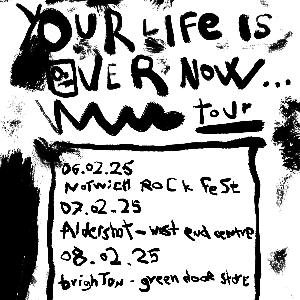 YOUR LIFE IS
OVER NOW...
tour
06.02.25
NORWICH ROCK FeSt
07.02.25
Aldershot - west end centre
08.02.25
brighTON - green door store